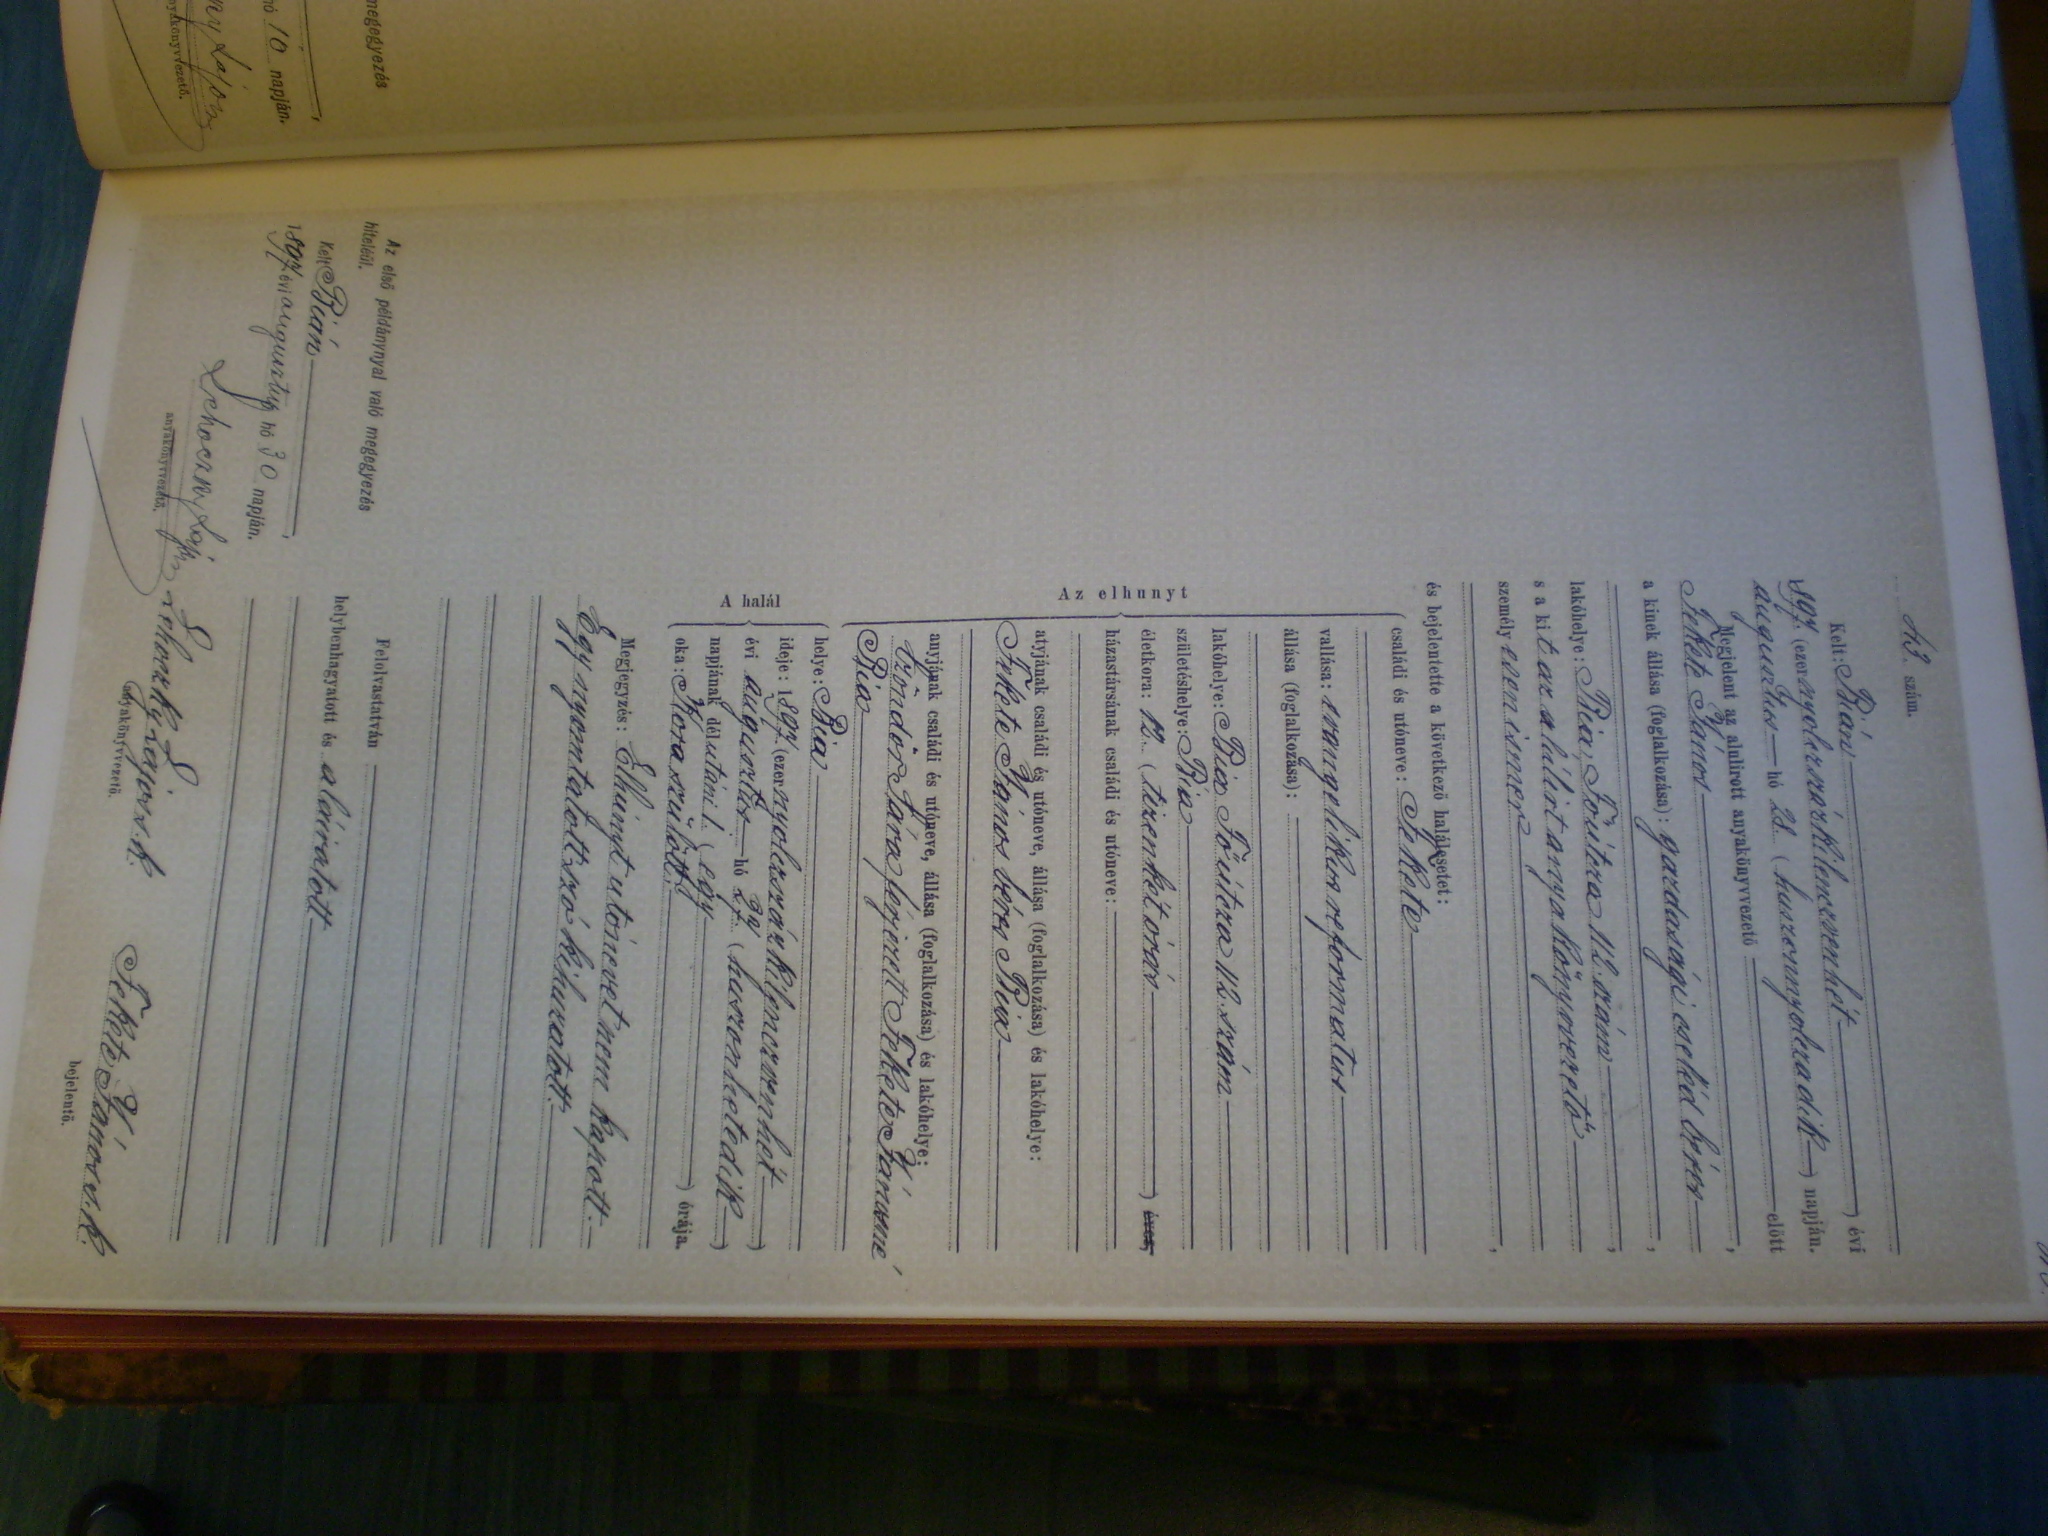 43. szám.
Kelt: Bián évi
1897. (ezer nyolczszázkilenczvenhét
augusztus hó 28. (huszonnyolczadik) napján.
Megjelent az alulirott anyakönyvvezető előtt
Fekete János,
a kinek állása (foglalkozása): gazdasági cseléd béres,
lakóhelye: Bia, Főutcza 112. szám,
s a kit az alulirt anyakönyvvezető
személyesen ismer,
és bejelentette a következő halálesetet:
Az elhunyt
családi és utóneve: Fekete
vallása: evangelikus reformatus
állása (foglalkozása):
lakóhelye: Bia Főutcza 112. szám
születéshelye: Bia
életkora: 12. (tizenkét órás) éves,
házastársának családi és utóneve:
atyjának családi és utóneve, állása (foglalkozása) és lakóhelye:
Fekete János béres Bia
anyjának családi és utóneve, állása (foglalkozása) és lakóhelye:
Czöndör Sára férjezett Fekete Jánosné
Bia
A halál
helye: Bia
ideje: 1897. (ezer nyolczszázkilenczvenhét)
évi augusztus hó 27. (huszonhetedik)
napjának délutáni 1. (egy) órája.
oka: Kora szülött.
Megjegyzés: Elhunyt utónevet nem kapott.
Egy nyomtatott szó kihuzatott.
Felolvastatván
helybenhagyatott és aláiratott
Lehoczky Lajos s. k.
anyakönyvvezető.
Fekete János s. k.
bejelentő.
Az első példánynyal való megegyezés
hiteléül.
Kelt Bián,
1897 évi augusztus hó 30 napján.
Lehoczky Lajos
anyakönyvvezető.
megegyezés
hó 10 napján.
ny Lajos
anyakönyvvezető.